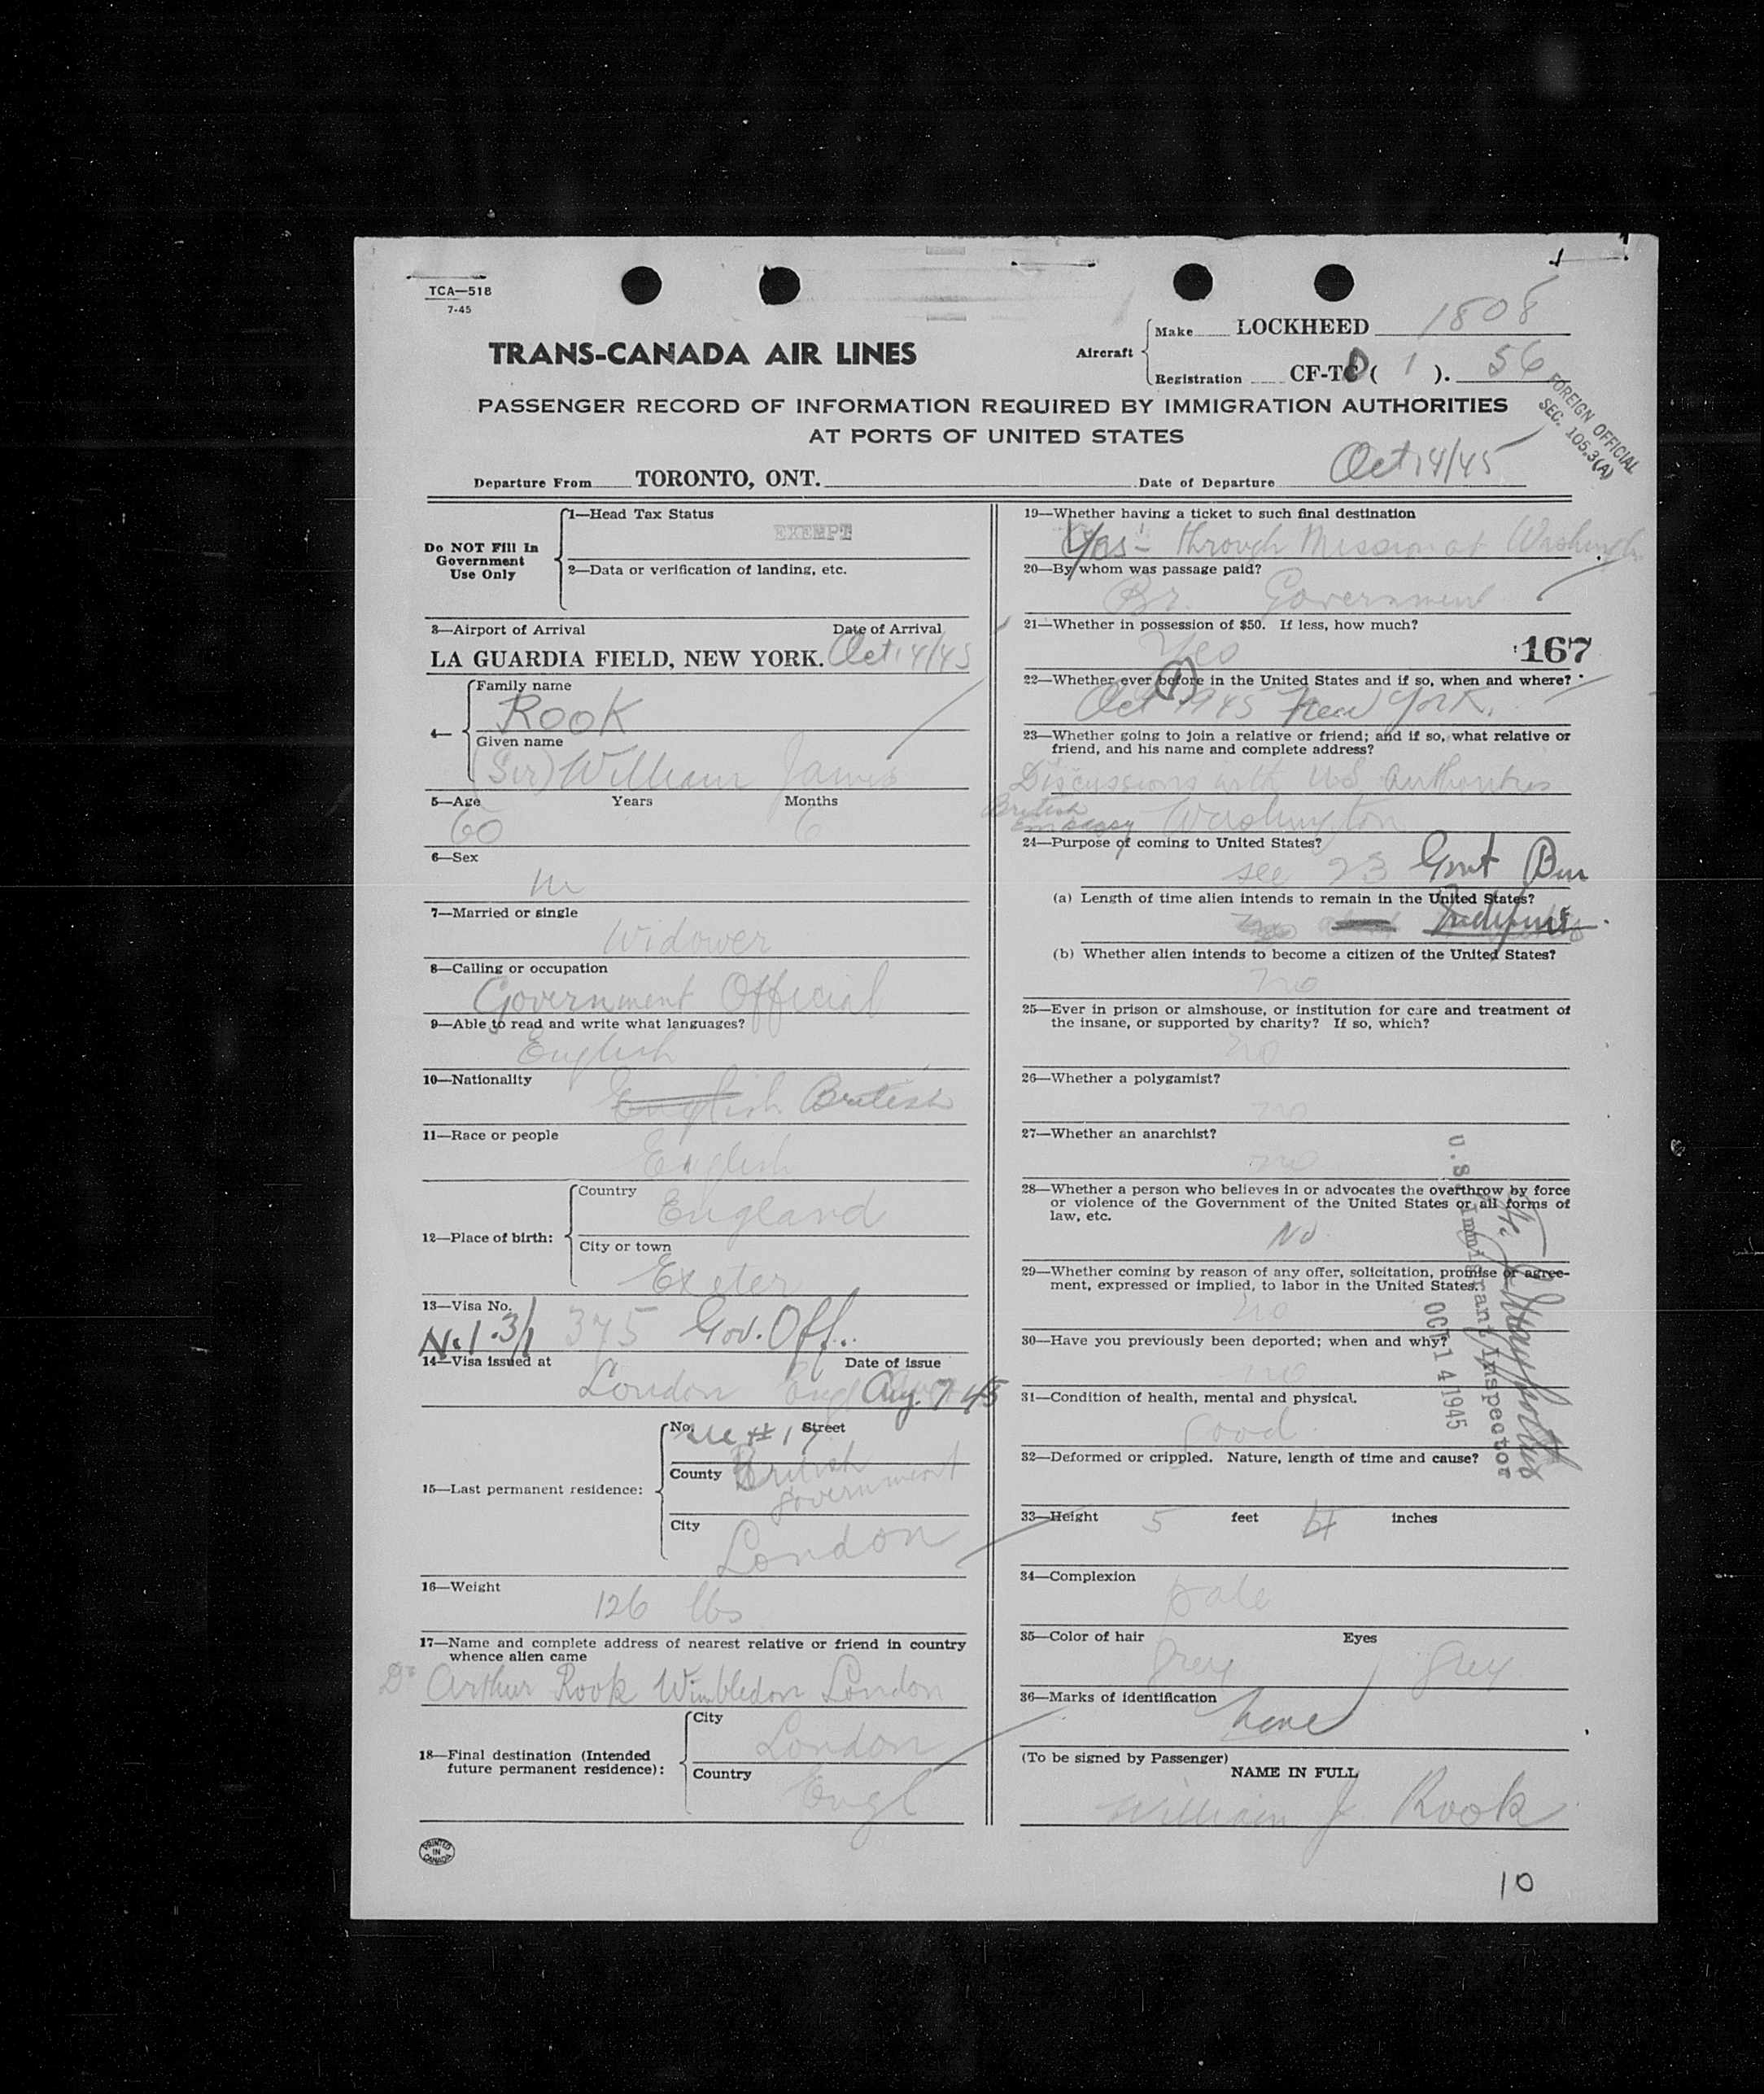 TCA—518
7-45
TRANS-CANADA AIR LINES
Aircraft
Make LOCKHEED 1808
Registration CF-TC ( 1 ). 56
FOREIGN OFFICIAL
SEC. 105.3(A)
PASSENGER RECORD OF INFORMATION REQUIRED BY IMMIGRATION AUTHORITIES
AT PORTS OF UNITED STATES
Departure From TORONTO, ONT. Date of Departure Oct 14/45
Do NOT Fill In
Government
Use Only
1—Head Tax Status
EXEMPT
2—Data or verification of landing, etc.
3—Airport of Arrival Date of Arrival
LA GUARDIA FIELD, NEW YORK. Oct 14/45
4—
Family name
ROOK
Given name
(Sir) William James
5—Age Years Months
60 6
6—Sex
M
7—Married or single
Widower
8—Calling or occupation
Government Official
9—Able to read and write what languages?
English
10—Nationality
English British
11—Race or people
English
12—Place of birth:
Country
England
City or town
Exeter
13—Visa No.
375 Gov. Off.
14—Visa issued at Date of issue
London Eng Aug. 7 45
15—Last permanent residence:
No. Street
see # 17
County British
Government
City
London
16—Weight
126 lbs
17—Name and complete address of nearest relative or friend in country
whence alien came
Dr Arthur Rook Wimbledon London
18—Final destination (Intended
future permanent residence):
City
London
Country
Engl
PRINTED
IN
CANADA
19—Whether having a ticket to such final destination
Yes - through Mission at
20—By whom was passage paid?
Br. Government
21—Whether in possession of $50. If less, how much?
Yes
167
22—Whether ever before in the United States and if so, when and where?
Oct 1945 New York.
23—Whether going to join a relative or friend; and if so, what relative or
friend, and his name and complete address?
Discussions with US Authorities
British
Embassy Washington
24—Purpose of coming to United States?
see 23 Govt Bus
(a) Length of time alien intends to remain in the United States?
(b) Whether alien intends to become a citizen of the United States?
no
25—Ever in prison or almshouse, or institution for care and treatment of
the insane, or supported by charity? If so, which?
no
26—Whether a polygamist?
no
27—Whether an anarchist?
no
28—Whether a person who believes in or advocates the overthrow by force
or violence of the Government of the United States or all forms of
law, etc.
No
29—Whether coming by reason of any offer, solicitation, promise or agree-
ment, expressed or implied, to labor in the United States.
no
30—Have you previously been deported; when and why?
no
31—Condition of health, mental and physical.
Good
U.S. Immigrant Inspector
OCT 14 1945
32—Deformed or crippled. Nature, length of time and cause?
33—Height 5 feet 4 inches
34—Complexion
pale
35—Color of hair Eyes
Grey Grey
36—Marks of identification
none
(To be signed by Passenger)
NAME IN FULL
William J Rook
10